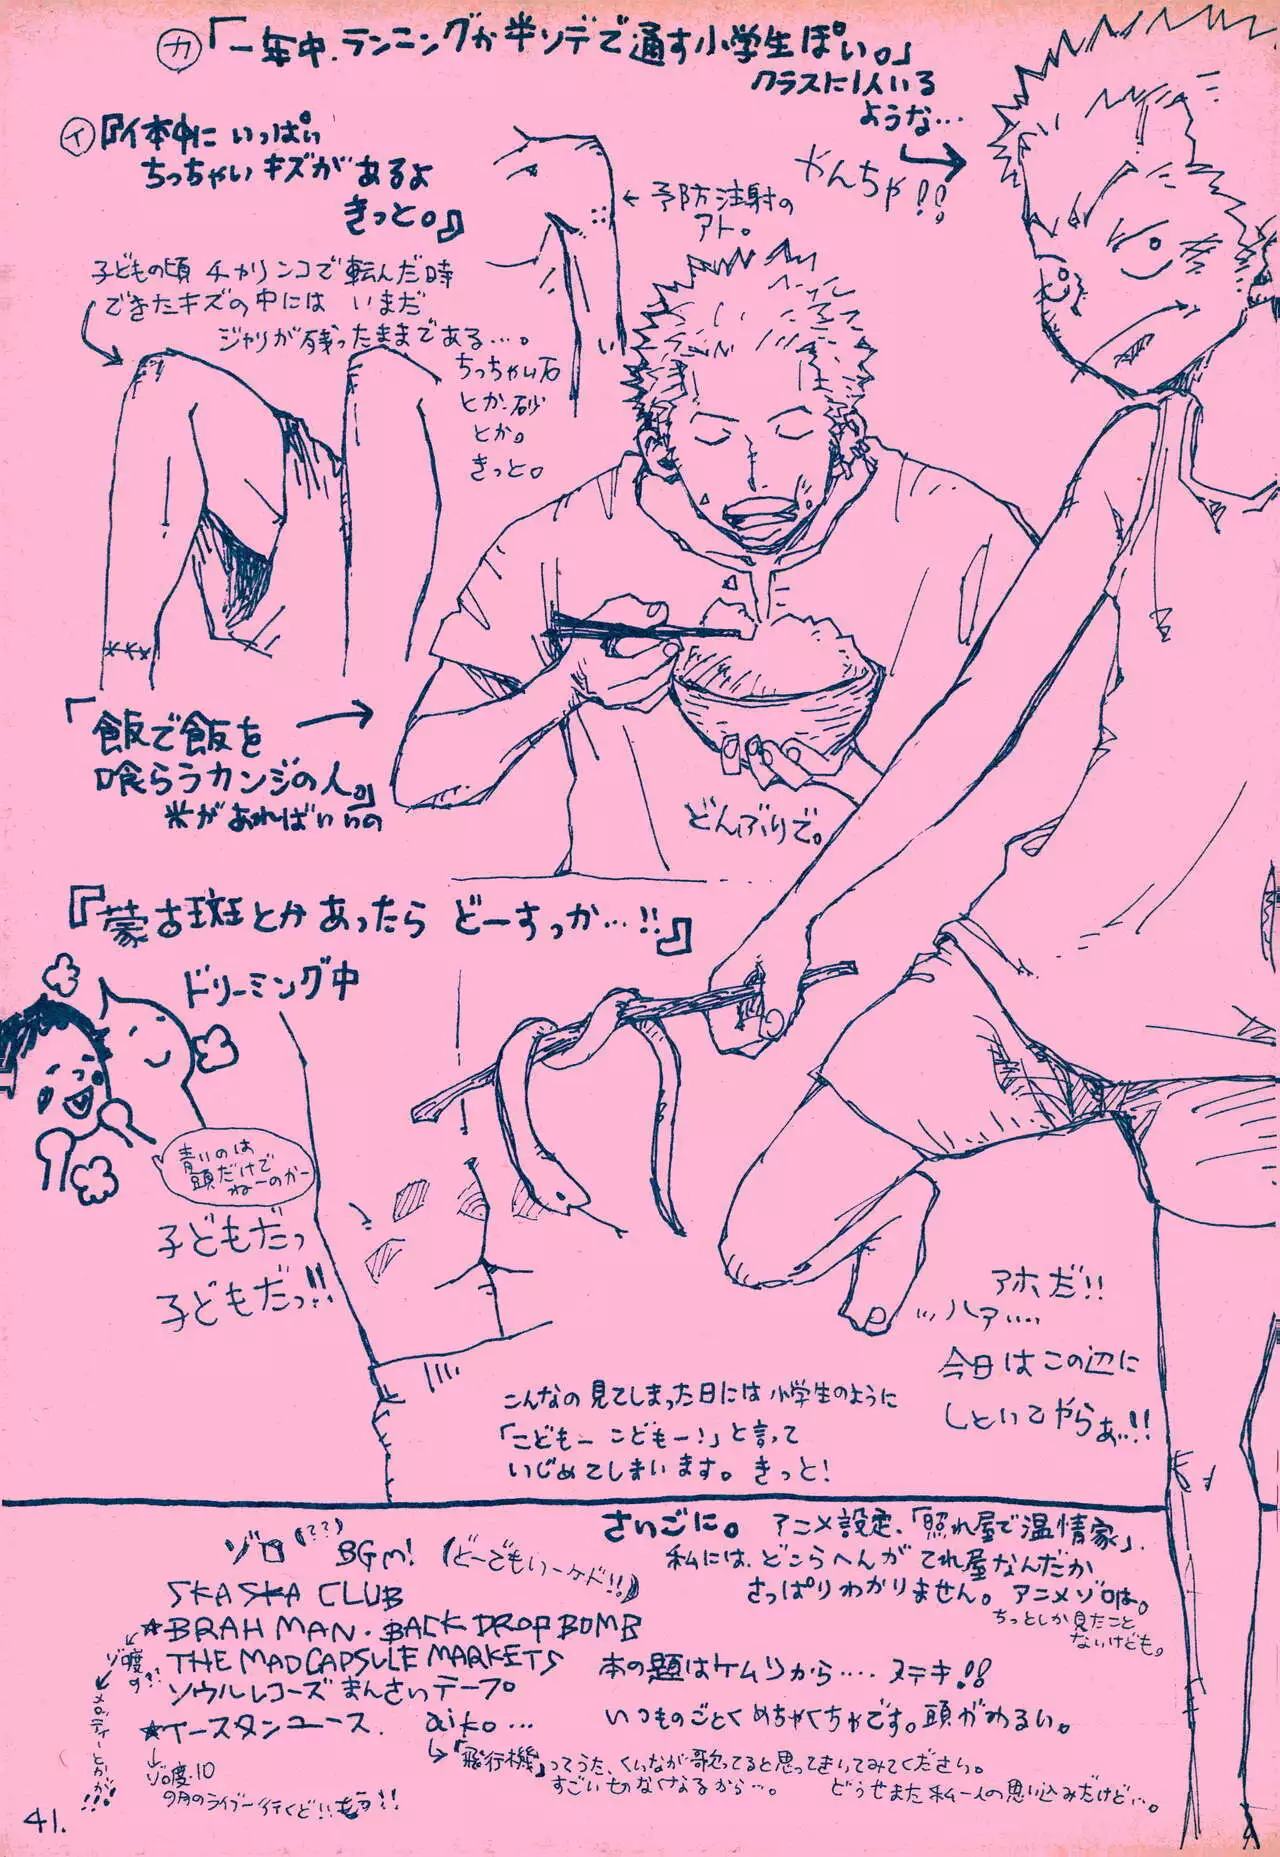 カ「一年中、ランニングか半ソデで通す小学生ぽい。」
クラスに1人いる
ような…
やんちゃ!!
イ『体中に いっぱい
ちっちゃい キズが あるよ
きっと。』
←予防注射の
アト。
子どもの頃 チャリンコで転んだ時
できたキズの中には いまだ
ジャリが残ったままである…。
ちっちゃい石
とか砂
とか。
きっと。
「飯で飯を
喰らうカンジの人。」
米があればいいの
どんぶりで。
『蒙古斑とかあったら どーすっか…!!』
ドリーミング中
青いのは
頭だけで
ねーのかー
子どもだっ
子どもだっ!!
アホだ!!
…ハァ…
今日はこの辺に
しといてやらぁ!!
こんなの見てしまった日には小学生のように
「こどもー こどもー!」と言って
いじめてしまいます。きっと!
ゾロ(???) BGM! (どーでもいーケド!!)
SKA SKA CLUB
☆BRAHMAN・BACK DROP BOMB
THE MAD CAPSULE MARKETS
ソウルレコーズまんさいテープ。
☆イースタンユース. aiko…
ゾロ度10
9月のライブー行くど!!
→「飛行機」ってうた、くいなが歌ってると思ってきいてみてください。
すごい切なくなるから…。 どうせまた私一人の思い込みだけど…。
さいごに。 アニメ設定、「照れ屋で温情家」.
私には、どこらへんが てれ屋なんだか
さっぱりわかりません。アニメゾロは。
ちっとしか見たこと
ないけども。
本の題はケムリから…. ステキ!!
いつものごとくめちゃくちゃです。頭がわるい。
41.